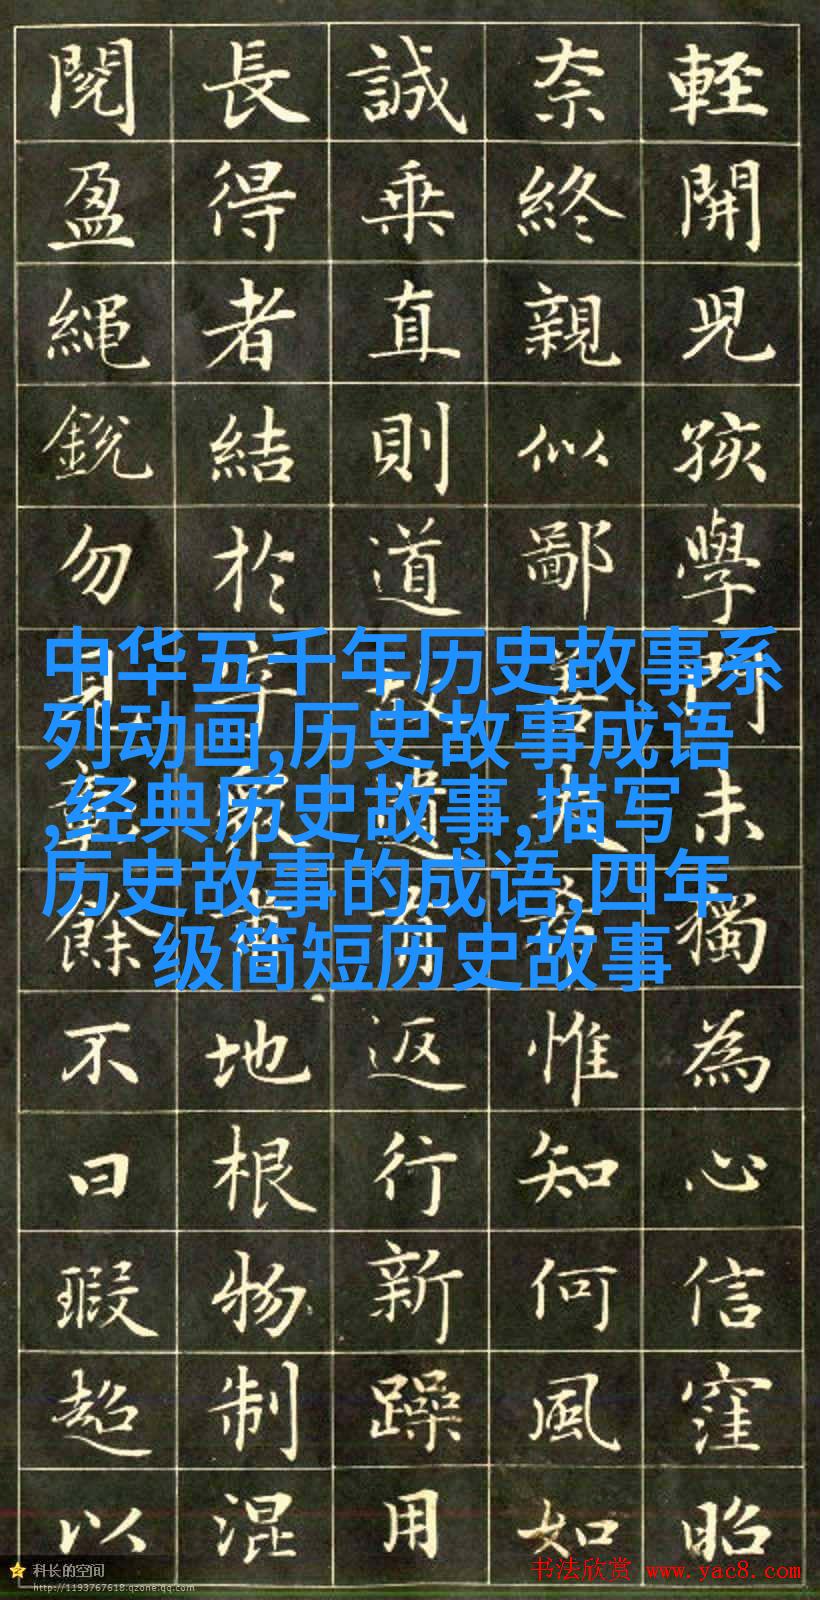 閱 長 誠 奈 輕
盈 得 乘 終 開
繩 者 直 親 兒
銳 結 則 似 孩
勿 於 道 鄙 學
中华五千年历史故事系
列动画,历史故事成语
,经典历史故事,描写
历史故事的成语,四年
级简短历史故事
門
未
餘 獨
不 地 返 惟 為
曰 根 行 知 心
瑕 物 新 何 信
超 制 躁 風 窪
以 混 用 如 昭
科长的空间
http://1193767618.qzone.qq.com
书法欣赏 www.yac8.com